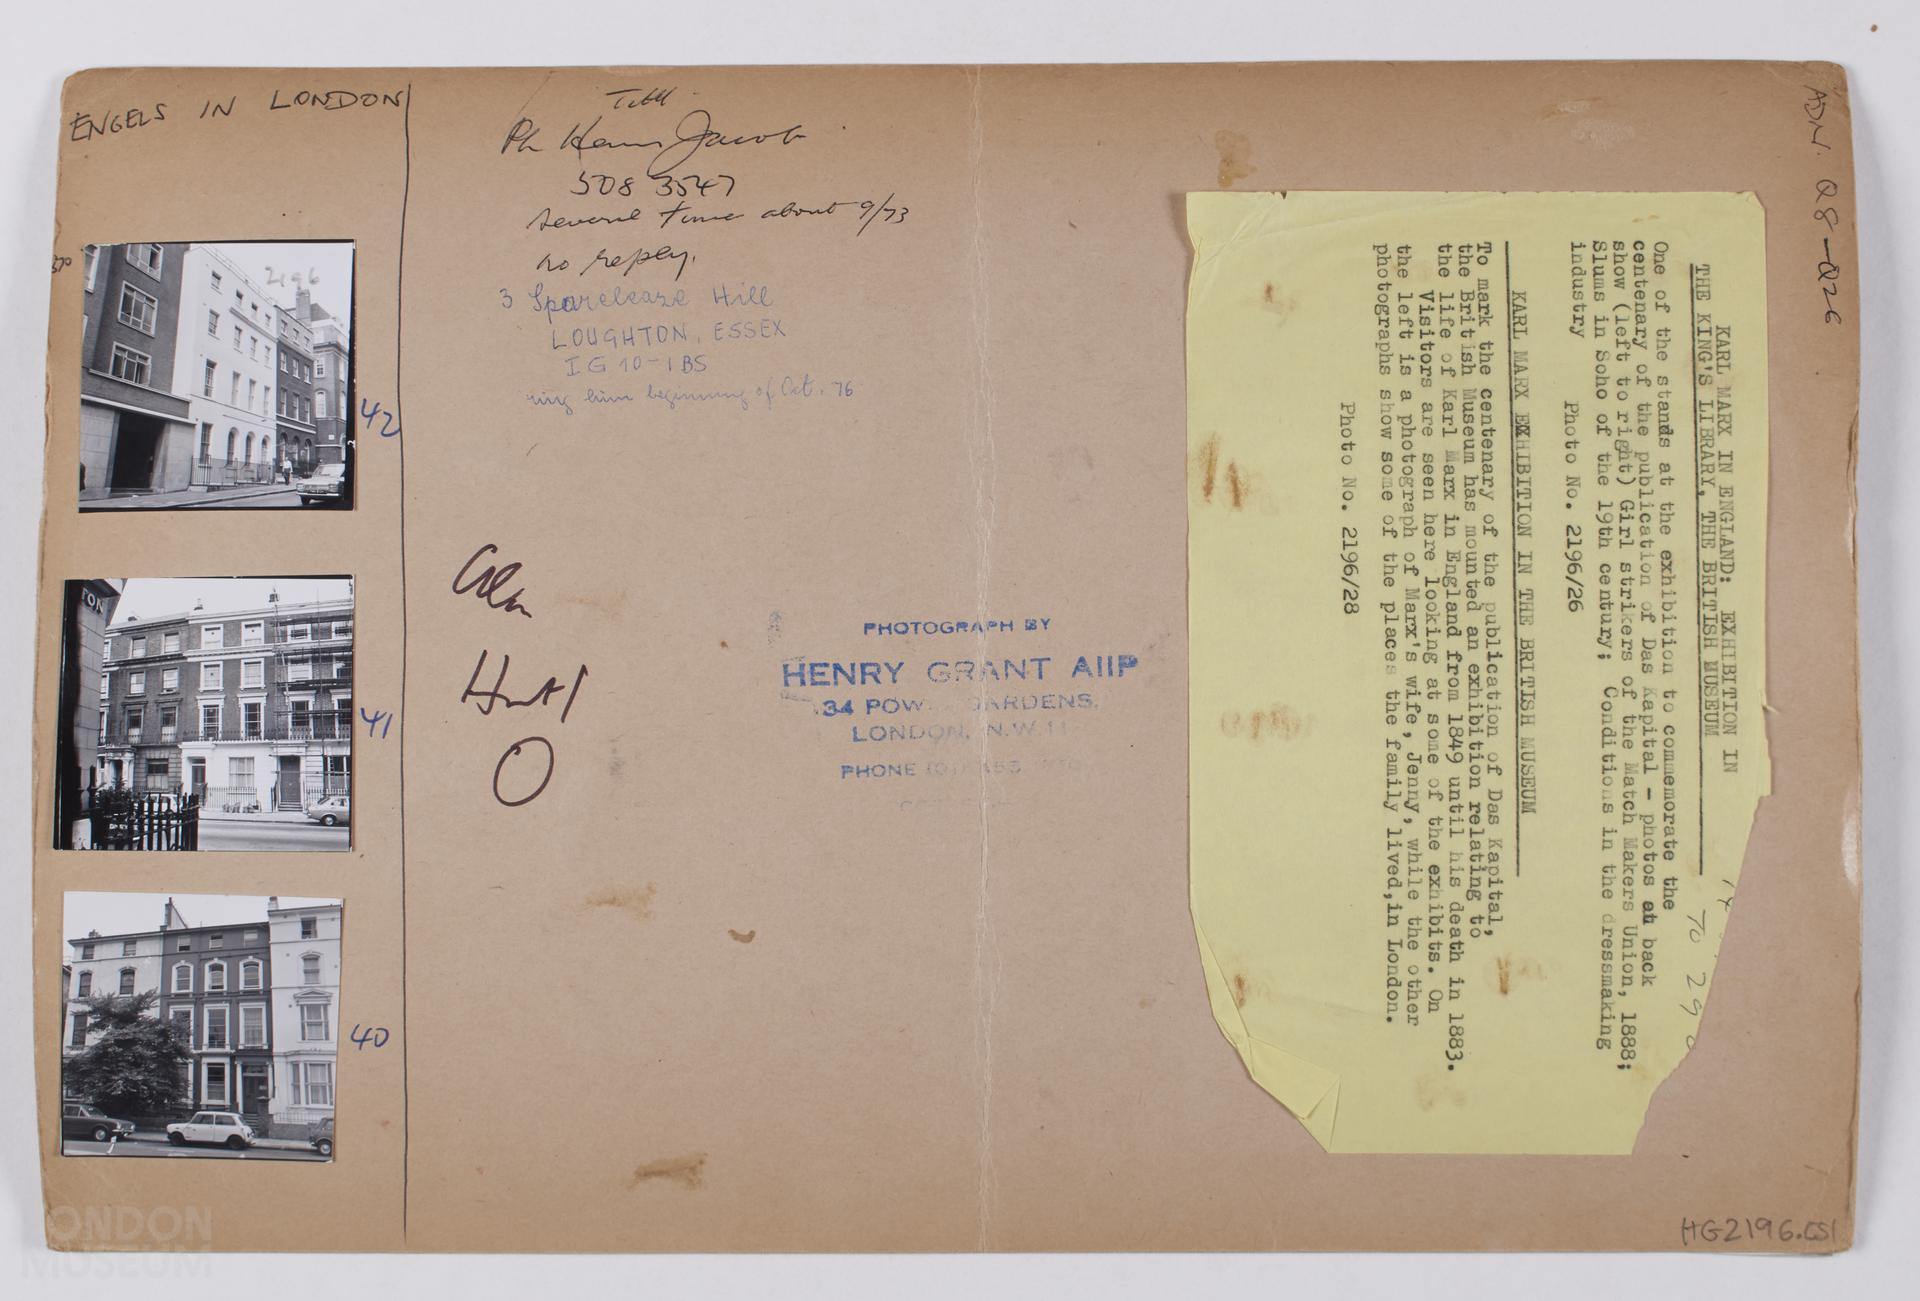 ENGELS IN LONDON
2196
42
41
40
Ph Hans Jacob
508 3547
several time about 9/73
no reply.
3 Spareleaze Hill
LOUGHTON, ESSEX
IG 10-1BS
ring him beginning of Oct. 76
PHOTOGRAPH BY
HENRY GRANT AIIP
34 GARDENS,
LONDON, N.W.11
PHONE
KARL MARX IN ENGLAND: EXHIBITION IN
THE KING'S LIBRARY, THE BRITISH MUSEUM
One of the stands at the exhibition to commemorate the
centenary of the publication of Das Kapital - photos at back
show (left to right) Girl strikers of the Match Makers Union, 1888;
Slums in Soho of the 19th century; Conditions in the dressmaking
industry
Photo No. 2196/26
KARL MARX EXHIBITION IN THE BRITISH MUSEUM
To mark the centenary of the publication of Das Kapital,
the British Museum has mounted an exhibition relating to
the life of Karl Marx in England from 1849 until his death in 1883.
Visitors are seen here looking at some of the exhibits. On
the left is a photograph of Marx's wife, Jenny, while the other
photographs show some of the places the family lived, in London.
Photo No. 2196/28
TO 29
ADN. Q8-Q26
HG2196.CS1
LONDON
MUSEUM